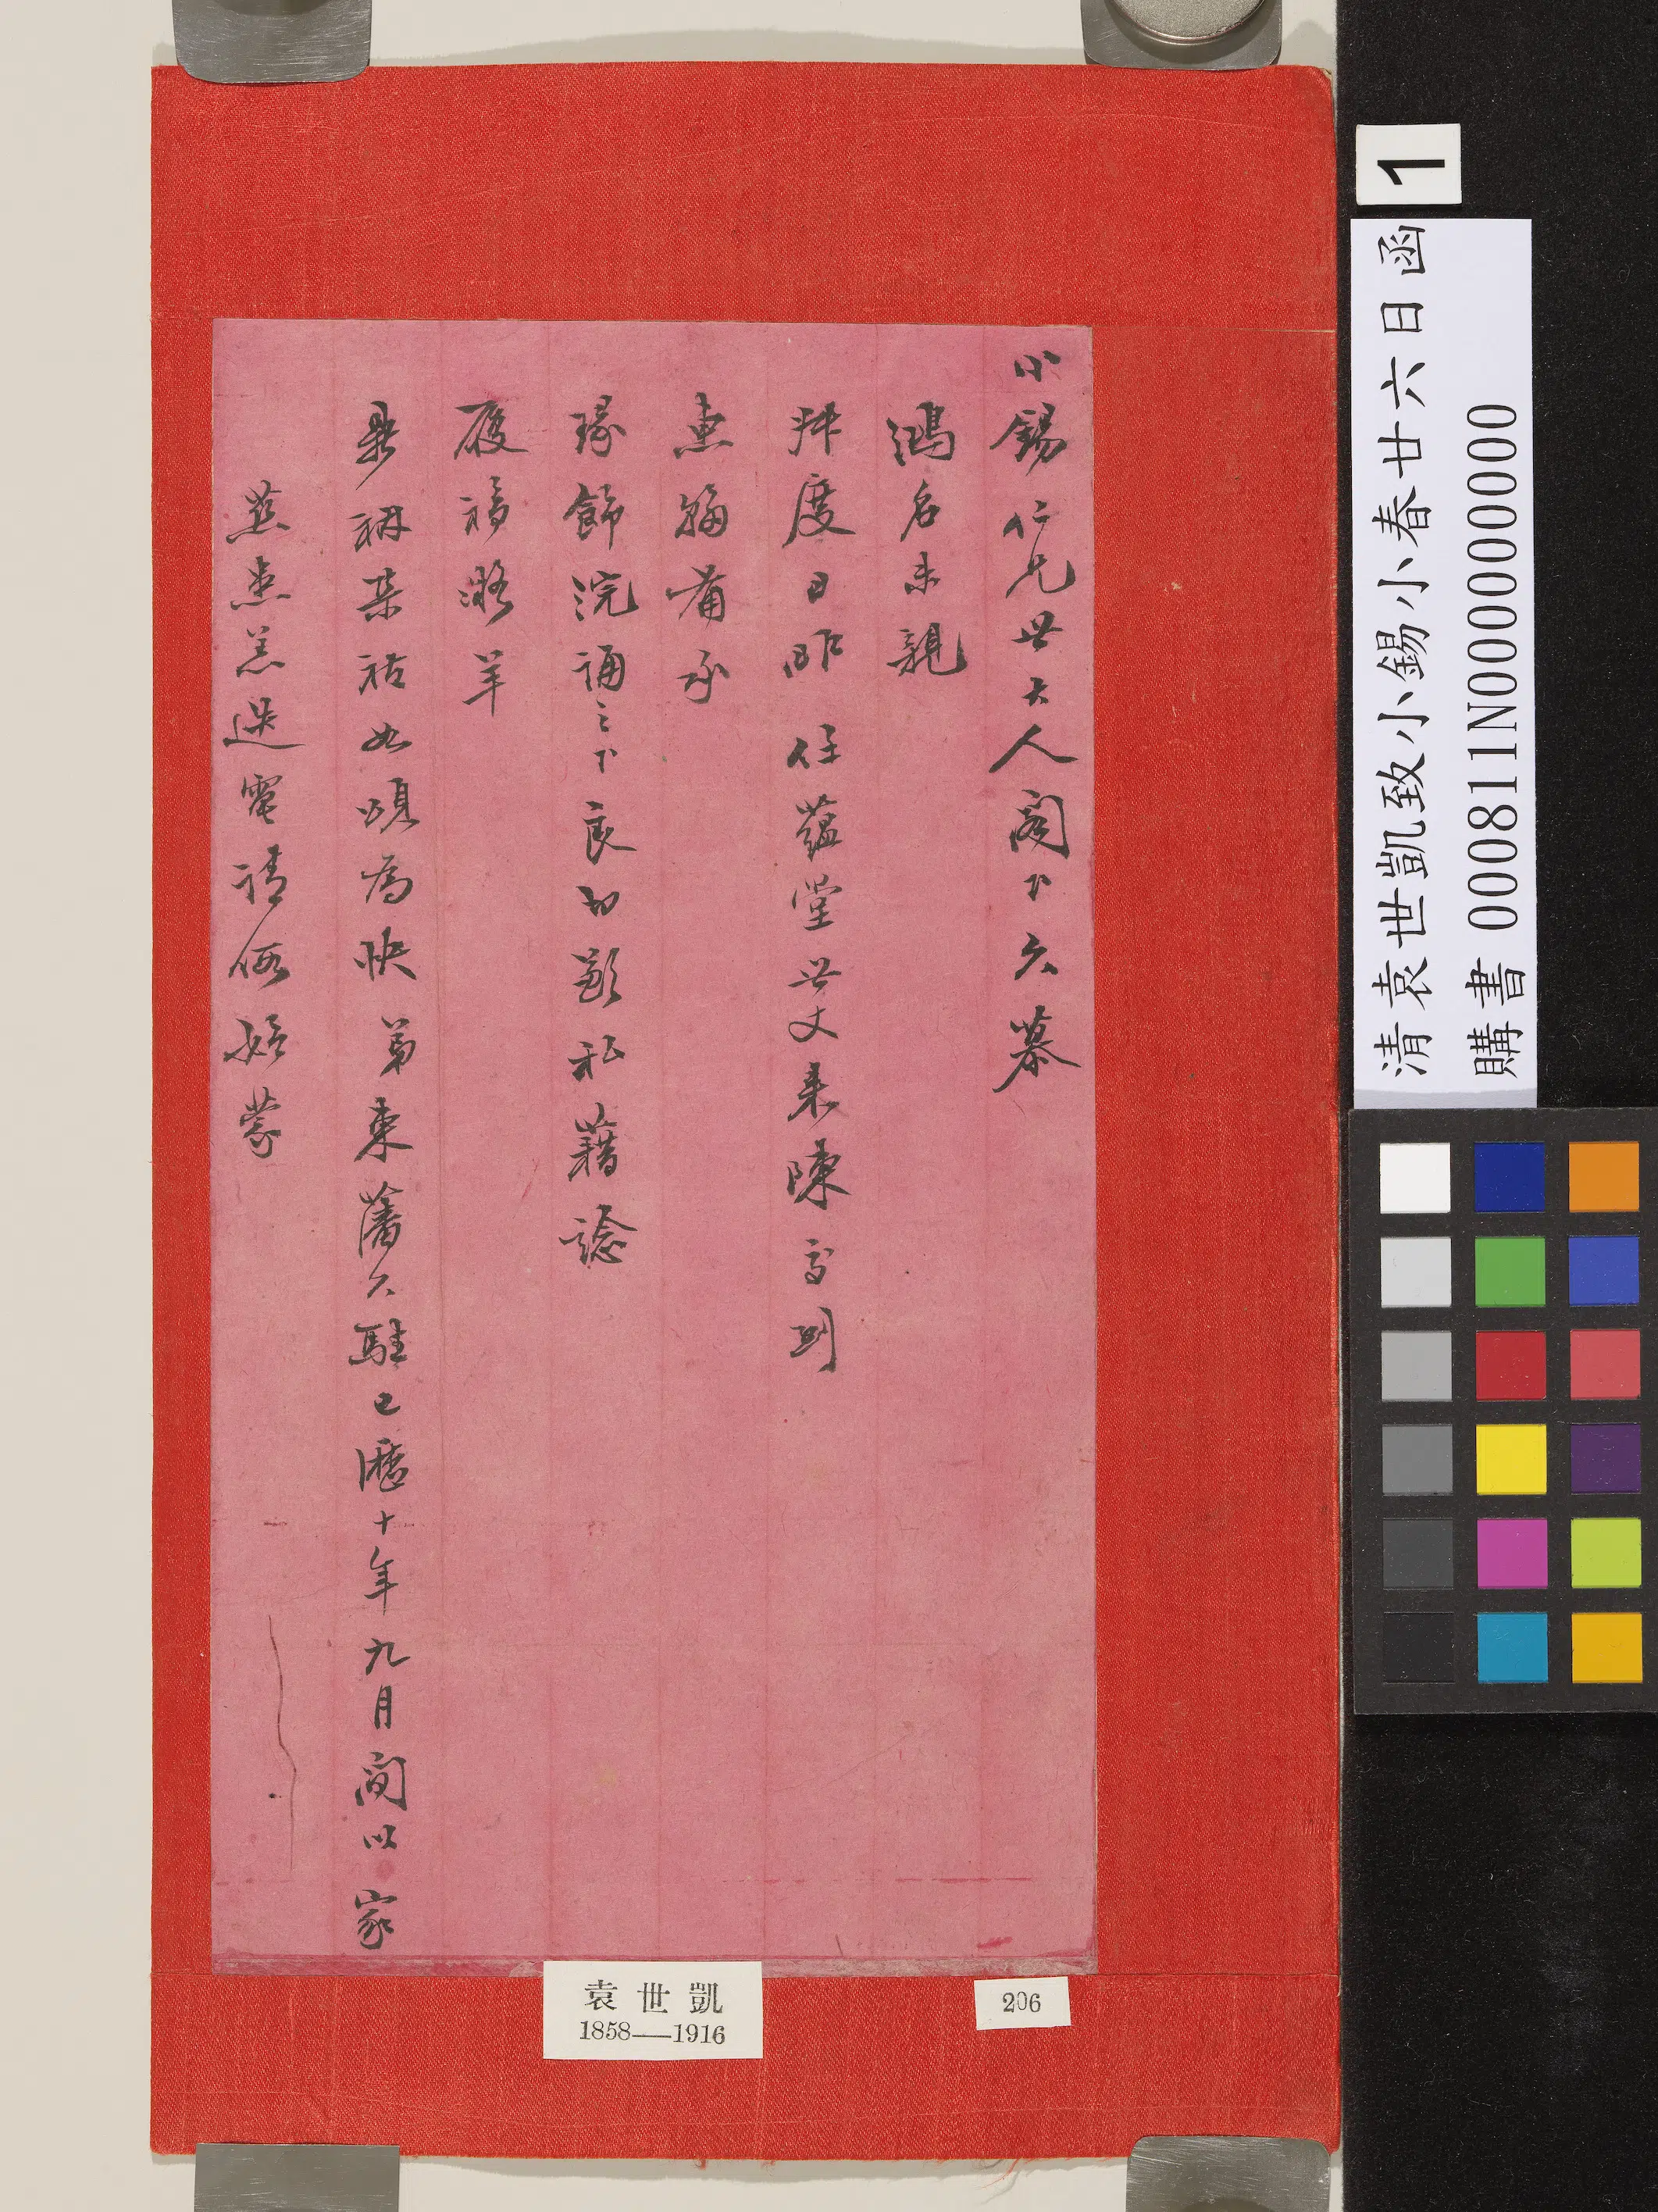 小錫仁兄世大人閣下久慕
鴻名未親
度日昨任蘊堂世丈來陳到
惠翰備承
飾浣誦之下良切歉私藉諗
履福凝羊
鼎祺集祜如頌為快弟東藩久駐已歷十年九月間以家
慈患恙迭電請假始蒙
袁世凱
1858—1916
206
1
清袁世凱致小錫小春廿六日函
購書 000811N000000000